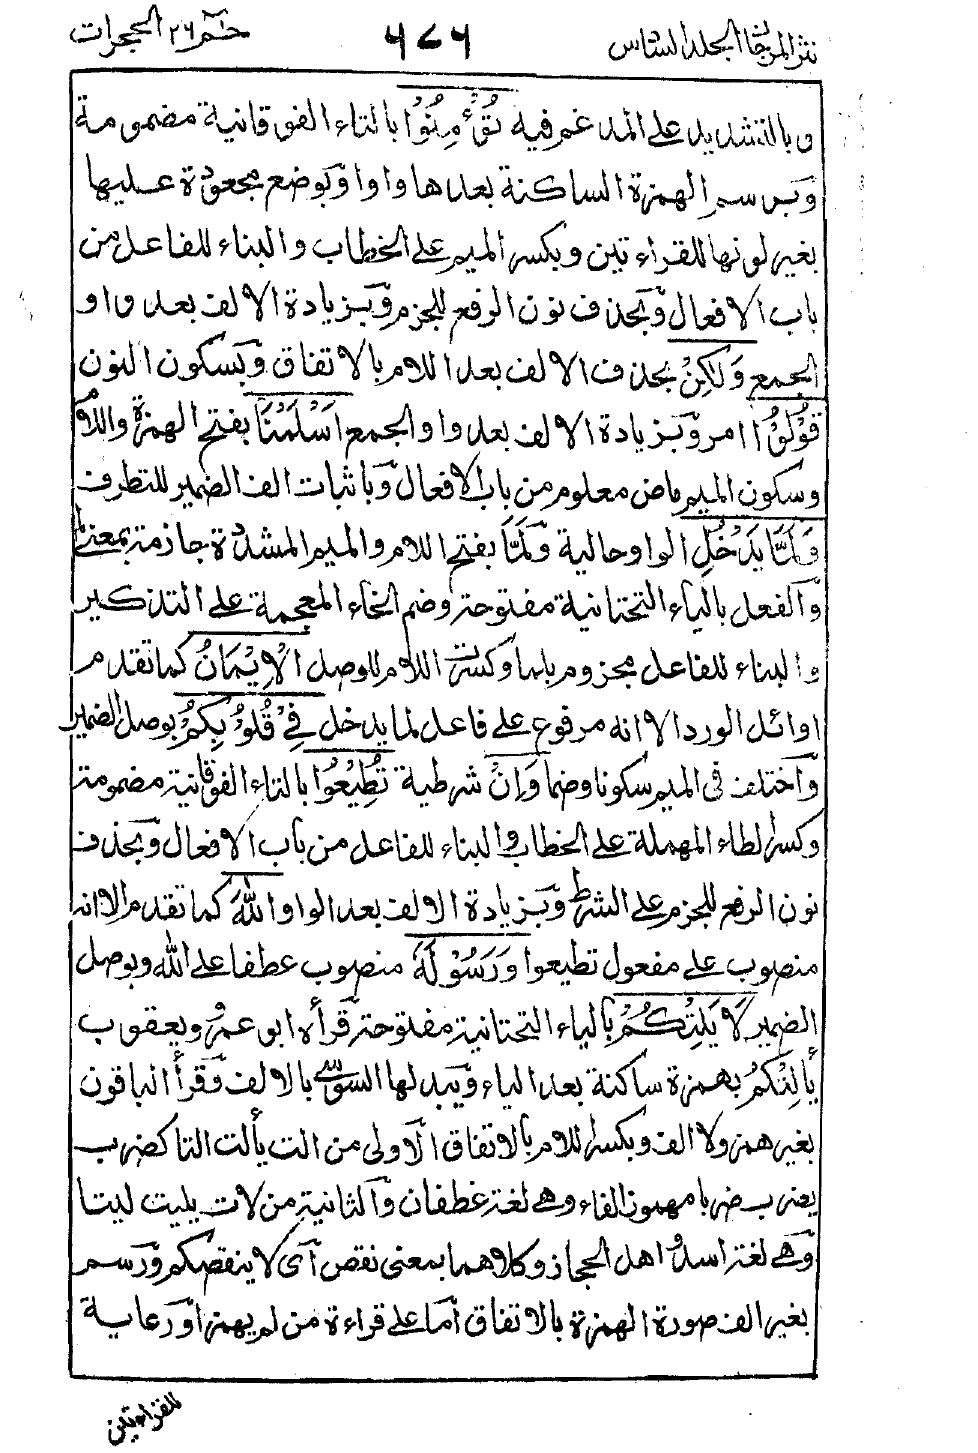 نثر المرجان المجلد السادس ٦٧٦ حٰمٓ ٢٦ الحجرات
وبالتشديد على المدغم فيه تُؤْمِنُوْا بالتاء الفوقانية مضمومة
وَبرسم الهمزة الساكنة بعدها واوا وَبوضع مجعودة عليها
بغير لونها للقراءتين وبكسر الميم على الخطاب والبناء للفاعل من
باب الافعال وَبحذف نون الرفع للجزم وَبزيادة الالف بعد واو
الجمع وَلٰكِنْ بحذف الالف بعد اللام بالاتفاق وَبسكون النون
قُوْلُوْا امر وَبزيادة الالف بعد واو الجمع اَسْلَمْنَا بفتح الهمزة واللام
وسكون الميم ماض معلوم من باب الافعال وَباثبات الف الضمير للتطرف
وَلَمَّا يَدْخُلِ الواو حالية وَلَمّا بفتح اللام والميم المشددة جازمة بمعنى لم
وَالفعل بالياء التحتانية مفتوحة وضم الخاء المعجمة على التذكير
والبناء للفاعل مجزوم بلما وكسرت اللام للوصل الْاِيْمَانُ كما تقدم
اوائل الورد الا انه مرفوع على فاعل لما يدخل فِيْ قُلُوْبِكُمْ بوصل الضمير
وَاختلف فى الميم سكونا وضما وَاِنْ شرطية تُطِيْعُوْا بالتاء الفوقانية مضمومة
وكسر الطاء المهملة على الخطاب والبناء للفاعل من باب الافعال وَبحذف
نون الرفع للجزم على الشرط وَبزيادة الالف بعد الواو اللّٰهَ كما تقدم الا انه
منصوب على مفعول تطيعوا وَرَسُوْلَهٗ منصوب عطفا على اللّٰه وبوصل
الضمير لَا يَلِتْكُمْ بالياء التحتانية مفتوحة قرأه ابو عمرو ويعقوب
يَأْلِتْكُمْ بهمزة ساكنة بعد الياء وَيبدلها السوسي بالالف وَقرأ الباقون
بغير همز ولا الف وبكسر اللام بالاتفاق الاولى من الت يألت التا كضرب
يضرب ضربا مهموز الفاء وهى لغة غطفان وَالثانية من لات يليت ليتا
وَهى لغة اسد واهل الحجاز وكلاهما بمعنى نقص اَى لا ينقصكم وَرسم
بغير الف صورة الهمزة بالاتفاق اَما على قراءة من لم يهمز اَو رعاية
للقراءتين